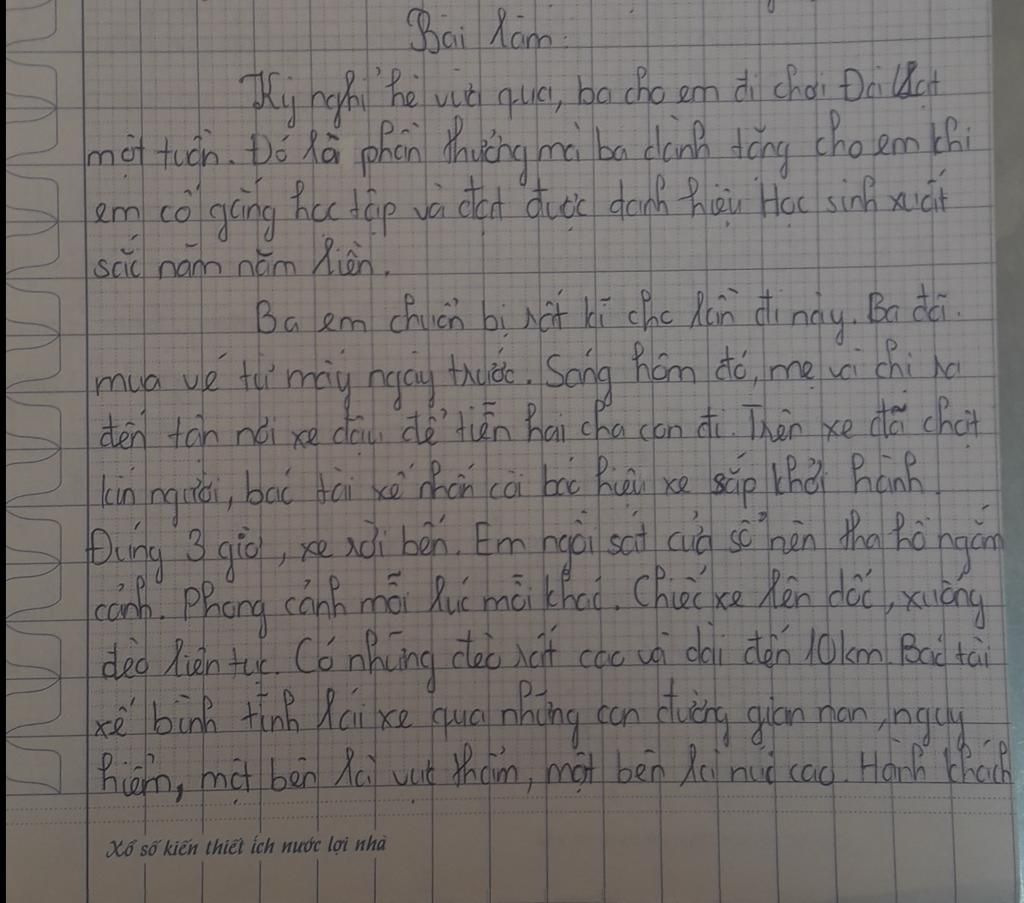 Bài làm:
Kỳ nghỉ hè vừa qua, ba cho em đi chơi Đà Lạt
một tuần. Đó là phần thưởng mà ba dành tặng cho em khi
em cố gắng học tập và đạt được danh hiệu Học sinh xuất
sắc năm năm liền.
Ba em chuẩn bị rất kĩ cho lần đi này. Ba đã
mua vé từ mấy ngày trước. Sáng hôm đó, mẹ và chị ra
đến tận nơi xe đậu để tiễn hai cha con đi. Trên xe đã chật
kín người, bác tài xế nhấn còi báo hiệu xe sắp khởi hành
Đúng 3 giờ, xe rời bến. Em ngồi sát cửa sổ nên tha hồ ngắm
cảnh. Phong cảnh mỗi lúc mỗi khác. Chiếc xe lên dốc, xuống
đèo liên tục. Có những đèo rất cao và dài đến 10km. Bác tài
xế bình tĩnh lái xe qua những con đường gian nan, nguy
hiểm, một bên là vực thẳm, một bên là núi cao. Hành khách
Xổ số kiến thiết ích nước lợi nhà